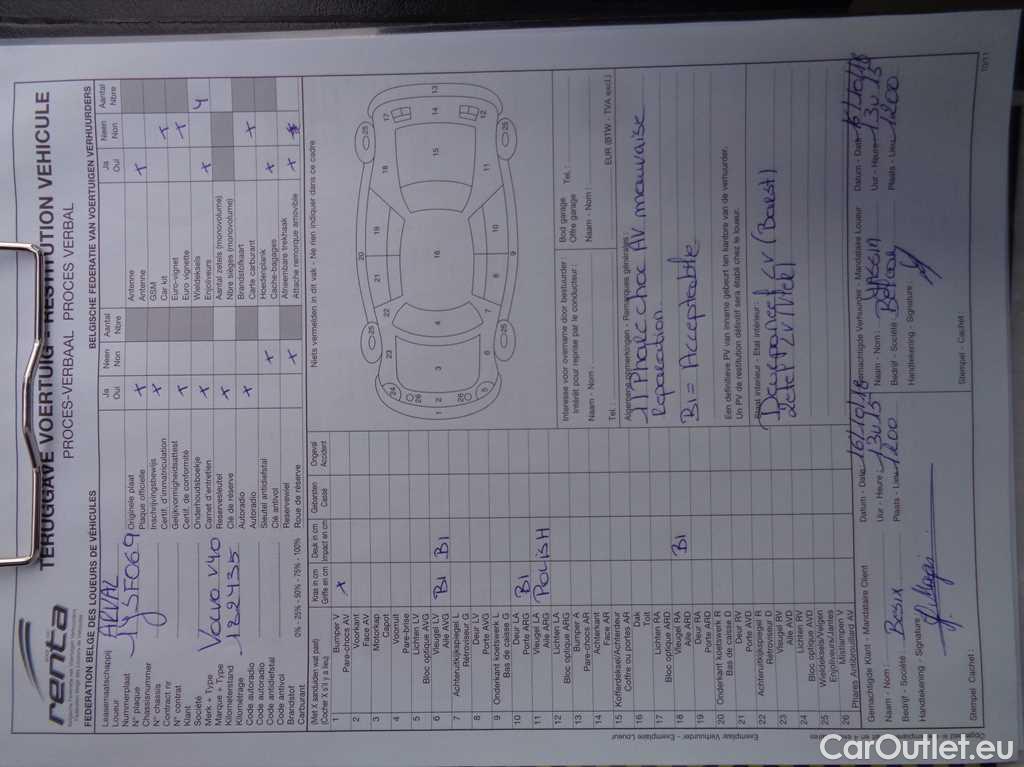 TERUGGAVE VOERTUIG - RESTITUTION VEHICULE
PROCES-VERBAAL PROCES VERBAL
renta
FEDERATION BELGE DES LOUEURS DE VÉHICULES
BELGISCHE FEDERATIE VAN VOERTUIGEN VERHUURDERS
Leasemaatschappij
Loueur
ARVAL
Nummerplaat
N° plaque
1YSF069
Chassisnummer
N° chassis
Contract nr
N° contrat
Klant
Société
Merk + Type
Marque + Type
Volvo V40
Kilometerstand
Kilométrage
122435
Code autoradio
Code autoradio
Code antidiefstal
Code antivol
Brandstof
Carburant
0% - 25% - 50% - 75% - 100%
Ja
Oui
Neen
Non
Aantal
Nbre
Originele plaat
Plaque officielle
x
Inschrijvingsbewijs
Certif. d'immatriculation
x
Gelijkvormigheidsattest
Certif. de conformité
x
Onderhoudsboekje
Carnet d'entretien
x
Reservesleutel
Clé de réserve
x
Autoradio
Autoradio
x
Sleutel antidiefstal
Clé antivol
x
Reservewiel
Roue de réserve
x
Ja
Oui
Neen
Non
Aantal
Nbre
Antenne
Antenne
x
GSM
Car kit
x
Euro-vignet
Euro vignette
x
Wieldeksels
Enjoliveurs
x
4
Aantal zetels (monovolume)
Nbre sièges (monovolume)
Brandstofkaart
Carte carburant
x
Hoedenplank
Cache-bagages
x
Afneembare trekhaak
Attache remorque amovible
x
(Met X aanduiden wat past)
(Cocher X s'il y a lieu)
Kras in cm
Griffe en cm
Deuk in cm
Impact en cm
Gebarsten
Cassé
Ongeval
Accident
1 Bumper V
Pare-chocs AV
x
2 Voorkant
Face AV
3 Motorkap
Capot
4 Voorruit
Pare-brise
5 Lichten LV
Bloc optique AVG
6 Vleugel LV
Aile AVG
B1 B1
7 Achteruitkijkspiegel L
Rétroviseur G
8 Deur LV
Porte AVG
9 Onderkant koetswerk L
Bas de caisse G
10 Deur LA
Porte ARG
B1
11 Vleugel LA
Aile ARG
Polish
12 Lichten LA
Bloc optique ARG
13 Bumper A
Pare-chocs AR
14 Achterkant
Face AR
15 Kofferdeksel/Achterdeur
Coffre ou portes AR
16 Dak
Toit
17 Lichten RA
Bloc optique ARD
18 Vleugel RA
Aile ARD
B1
19 Deur RA
Porte ARD
20 Onderkant koetswerk R
Bas de caisse D
21 Deur RV
Porte AVD
22 Achteruitkijkspiegel R
Rétroviseur D
23 Vleugel RV
Aile AVD
24 Lichten RV
Bloc optique AVD
25 Wieldeksels/Velgen
Enjoliveurs/Jantes
26 Mistlampen V
Phares Antibrouillard AV
Niets vermelden in dit vak - Ne rien indiquer dans ce cadre
Interesse voor overname door bestuurder
Intérêt pour reprise par le conducteur :
Naam - Nom :
Tel. :
Bod garage
Offre garage
Tel. :
Naam - Nom :
EUR (BTW - TVA excl.)
Algemene opmerkingen - Remarques générales :
1) Pharechoc AV mauvaise
reparation
B1 = Acceptable
Een definitieve PV van inname gebeurt ten kantore van de verhuurder.
Un PV de restitution définitif sera établi chez le loueur.
Staat interieur - Etat intérieur :
Gemachtigde Klant - Mandataire Client
Naam - Nom :
Bosix
Bedrijf - Société :
Handtekening - Signature :
Stempel - Cachet :
Datum - Date : 16/10/18
Uur - Heure : 13u15
Plaats - Lieu : 1200
Gemachtigde Verhuurder - Mandataire Loueur
Naam - Nom :
Bedrijf - Société :
Handtekening - Signature :
Stempel - Cachet :
Datum - Date : 16/10/18
Uur - Heure : 13u15
Plaats - Lieu : 1200
Exemplaar Verhuurder - Exemplaire Loueur
10/11
CarOutlet.eu